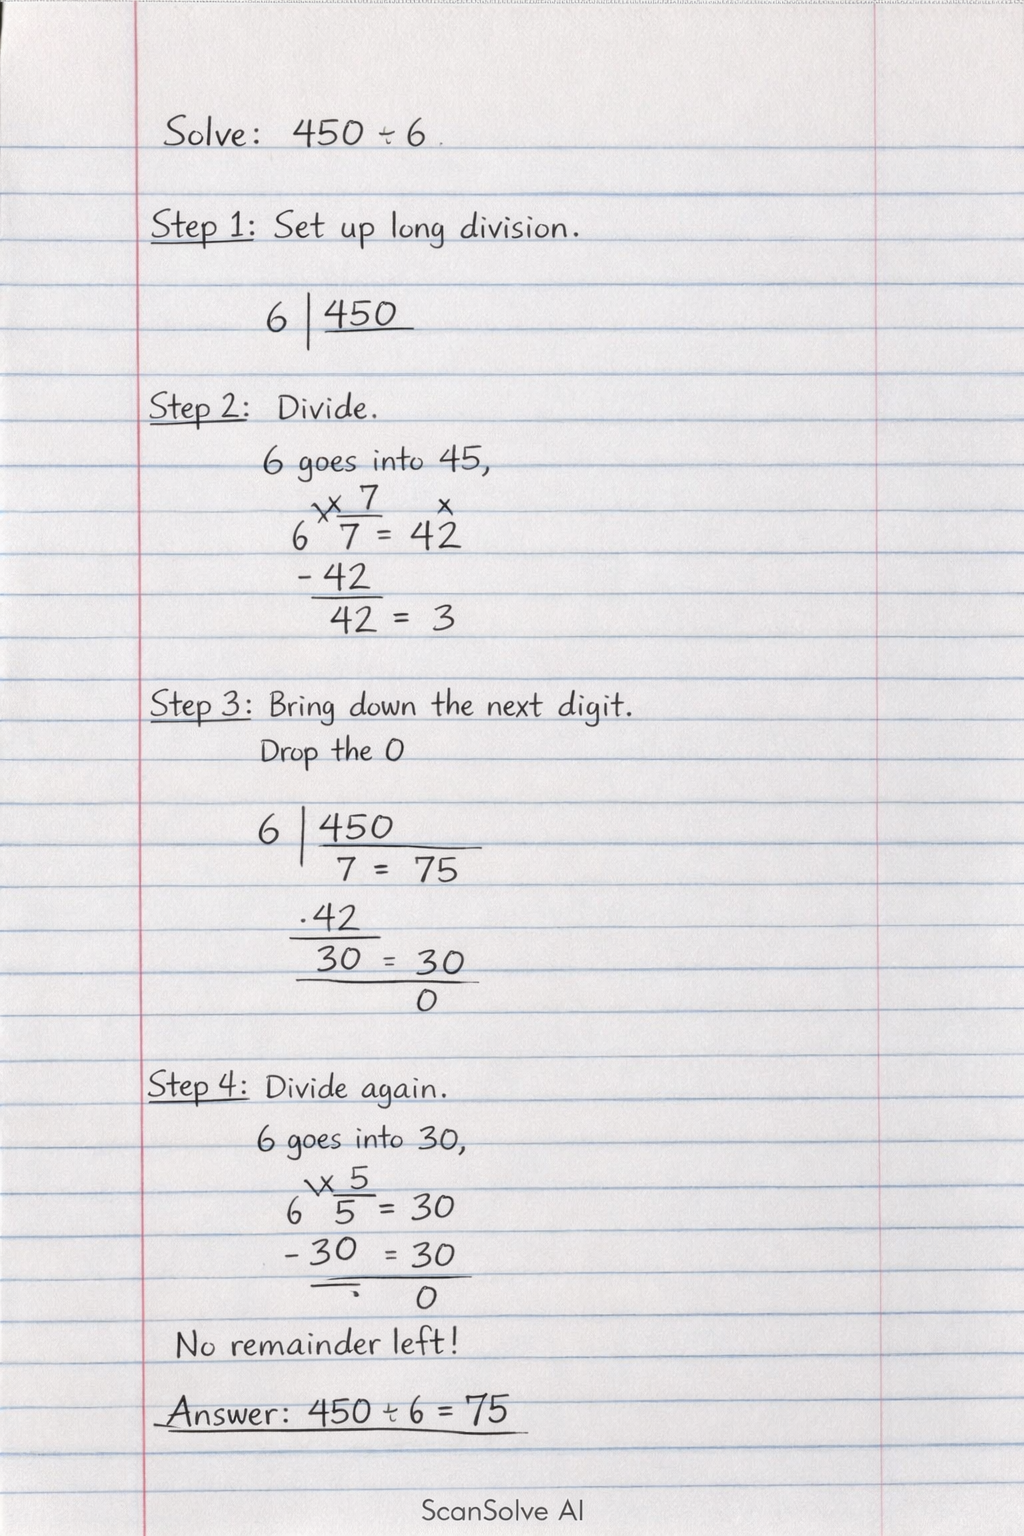 Solve: 450 ÷ 6.
Step 1: Set up long division.
6 | 450
Step 2: Divide.
6 goes into 45,
xx 7 x
6 7 = 42
- 42
42 = 3
Step 3: Bring down the next digit.
Drop the 0
6 | 450
7 = 75
. 42
30 = 30
0
Step 4: Divide again.
6 goes into 30,
\x 5
6 5 = 30
- 30 = 30
0
No remainder left!
Answer: 450 ÷ 6 = 75
ScanSolve AI